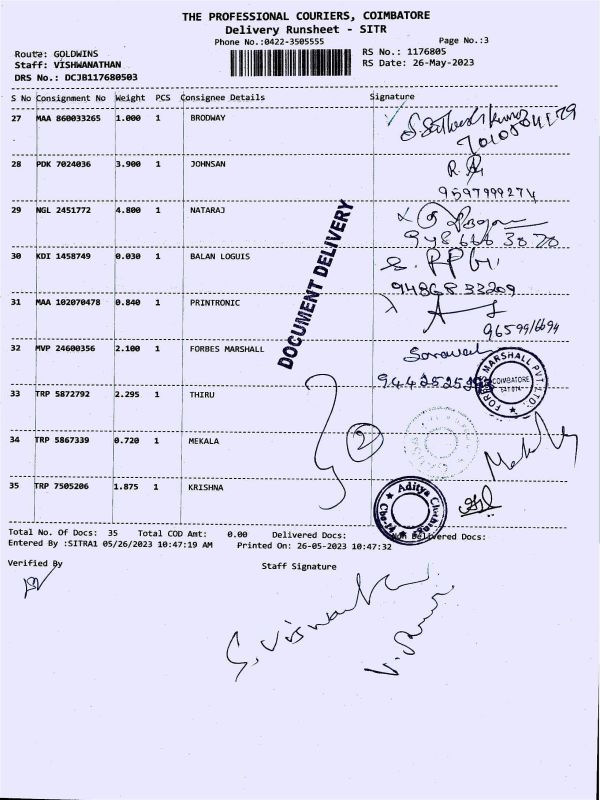 THE PROFESSIONAL COURIERS, COIMBATORE
Delivery Runsheet - SITR
Phone No.:0422-3505555 Page No.:3
Route: GOLDWINS RS No.: 1176805
Staff: VISHWANATHAN RS Date: 26-May-2023
DRS No.: DCJB117680503
S No Consignment No Weight PCS Consignee Details Signature
27 MAA 860033265 1.000 1 BRODWAY
28 PDK 7024036 3.900 1 JOHNSAN
9597999274
29 NGL 2451772 4.800 1 NATARAJ
30 KDI 1458749 0.030 1 BALAN LOGUIS
31 MAA 102070478 0.840 1 PRINTRONIC
32 MVP 24600356 2.100 1 FORBES MARSHALL
FORBES MARSHALL PVT LTD. COIMBATORE
33 TRP 5872792 2.295 1 THIRU
34 TRP 5867339 0.720 1 MEKALA
2
35 TRP 7505206 1.875 1 KRISHNA
Aditya
DOCUMENT DELIVERY
Total No. Of Docs: 35 Total COD Amt: 0.00 Delivered Docs: Non Delivered Docs:
Entered By :SITRA1 05/26/2023 10:47:19 AM Printed On: 26-05-2023 10:47:32
Verified By Staff Signature